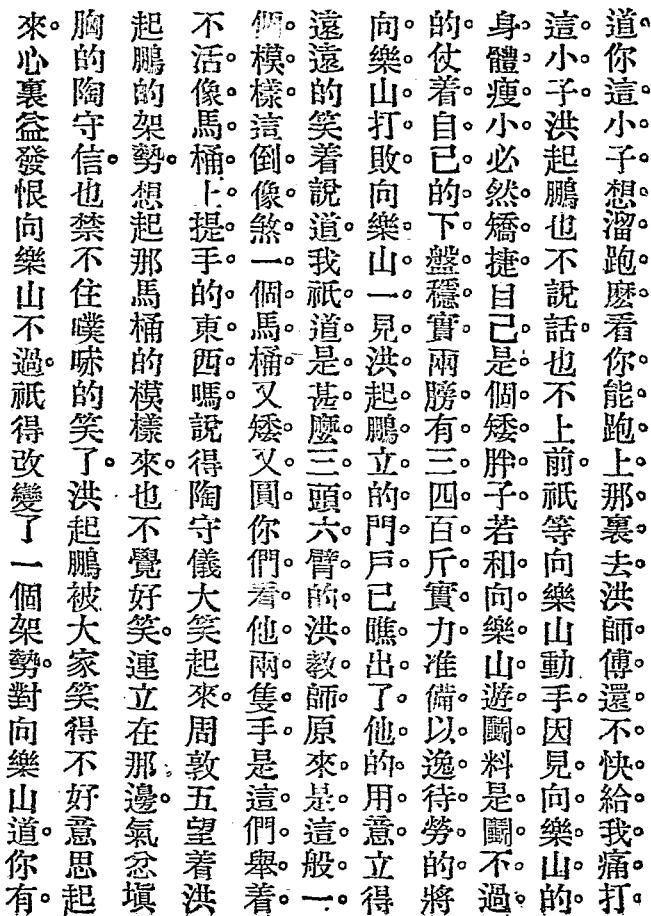 道你這小子想溜跑麽看你能跑上那裏去洪師傅還不快給我痛打
這小子洪起鵬也不說話也不上前祇等向樂山動手因見向樂山的
身體瘦小必然矯捷自己是個矮胖子若和向樂山遊鬭料是鬭不過
的仗着自己的下盤穩實兩膀有三四百斤實力准備以逸待勞的將
向樂山打敗向樂山一見洪起鵬立的門戶已瞧出了他的用意立得
遠遠的笑着說道我祇道是甚麽三頭六臂的洪教師原來是這般一
個模樣這倒像煞一個馬桶又矮又圓你們看他兩隻手是這們舉着
不活像馬桶上提手的東西嗎說得陶守儀大笑起來周敦五望着洪
起鵬的架勢想起那馬桶的模樣來也不覺好笑連立在那邊氣忿塡
胸的陶守信也禁不住噗哧的笑了洪起鵬被大家笑得不好意思起
來心裏益發恨向樂山不過祇得改變了一個架勢對向樂山道你有